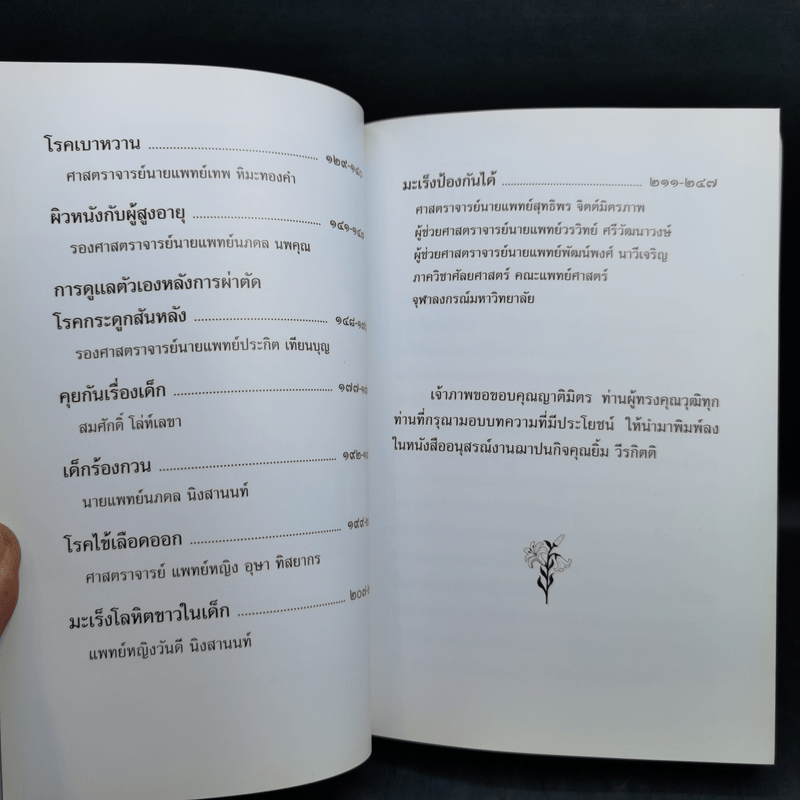 โรคเบาหวาน ๑๒๙-๑๔๐
ศาสตราจารย์นายแพทย์เทพ หิมะทองคำ
ผิวหนังกับผู้สูงอายุ
รองศาสตราจารย์นายแพทย์นภดล นพคุณ
การดูแลตัวเองหลังการผ่าตัด
โรคกระดูกสันหลัง
รองศาสตราจารย์นายแพทย์ประกิต เทียนบุญ
คุยกันเรื่องเด็ก
สมศักดิ์ โล่ห์เลขา
เด็กร้องกวน
นายแพทย์นภดล นิงสานนท์
โรคไข้เลือดออก
ศาสตราจารย์ แพทย์หญิง อุษา ทิสยากร
มะเร็งโลหิตขาวในเด็ก
แพทย์หญิงวันดี นิงสานนท์
มะเร็งป้องกันได้ ๒๑๑-๒๔๗
ศาสตราจารย์นายแพทย์สุทธิพร จิตต์มิตรภาพ
ผู้ช่วยศาสตราจารย์นายแพทย์วรวิทย์ ศรีวัฒนาวงษ์
ผู้ช่วยศาสตราจารย์นายแพทย์พัฒน์พงศ์ นาวีเจริญ
ภาควิชาศัลยศาสตร์ คณะแพทย์ศาสตร์
จุฬาลงกรณ์มหาวิทยาลัย
เจ้าภาพขอขอบคุณญาติมิตร ท่านผู้ทรงคุณวุฒิทุก
ท่านที่กรุณามอบบทความที่มีประโยชน์ ให้นำมาพิมพ์ลง
ในหนังสืออนุสรณ์งานฌาปนกิจคุณยิ้ม วีรกิตติ